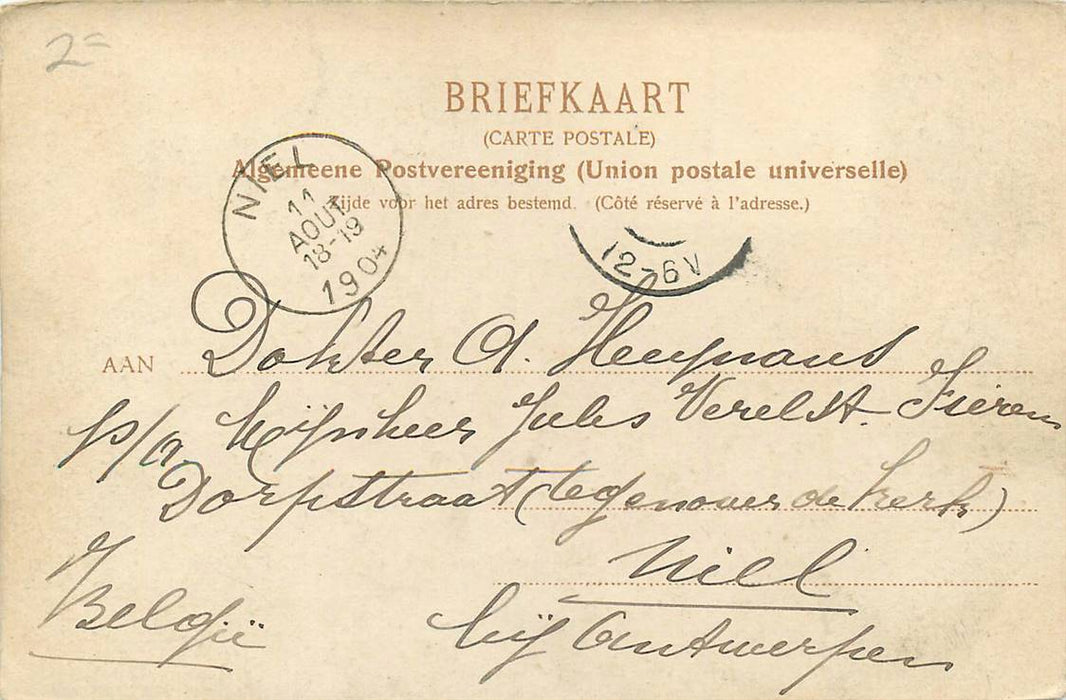 2=
BRIEFKAART
(CARTE POSTALE)
Algemeene Postvereeniging (Union postale universelle)
Zijde voor het adres bestemd. (Côté réservé à l'adresse.)
NIEL
11
AOUT
18-19
1904
12-6V
AAN Dokter A. Heymans
p/a Mijnheer Jules Verelst. Fierens
Dorpstraat (tegenover de kerk)
Niel
bij Antwerpen
België